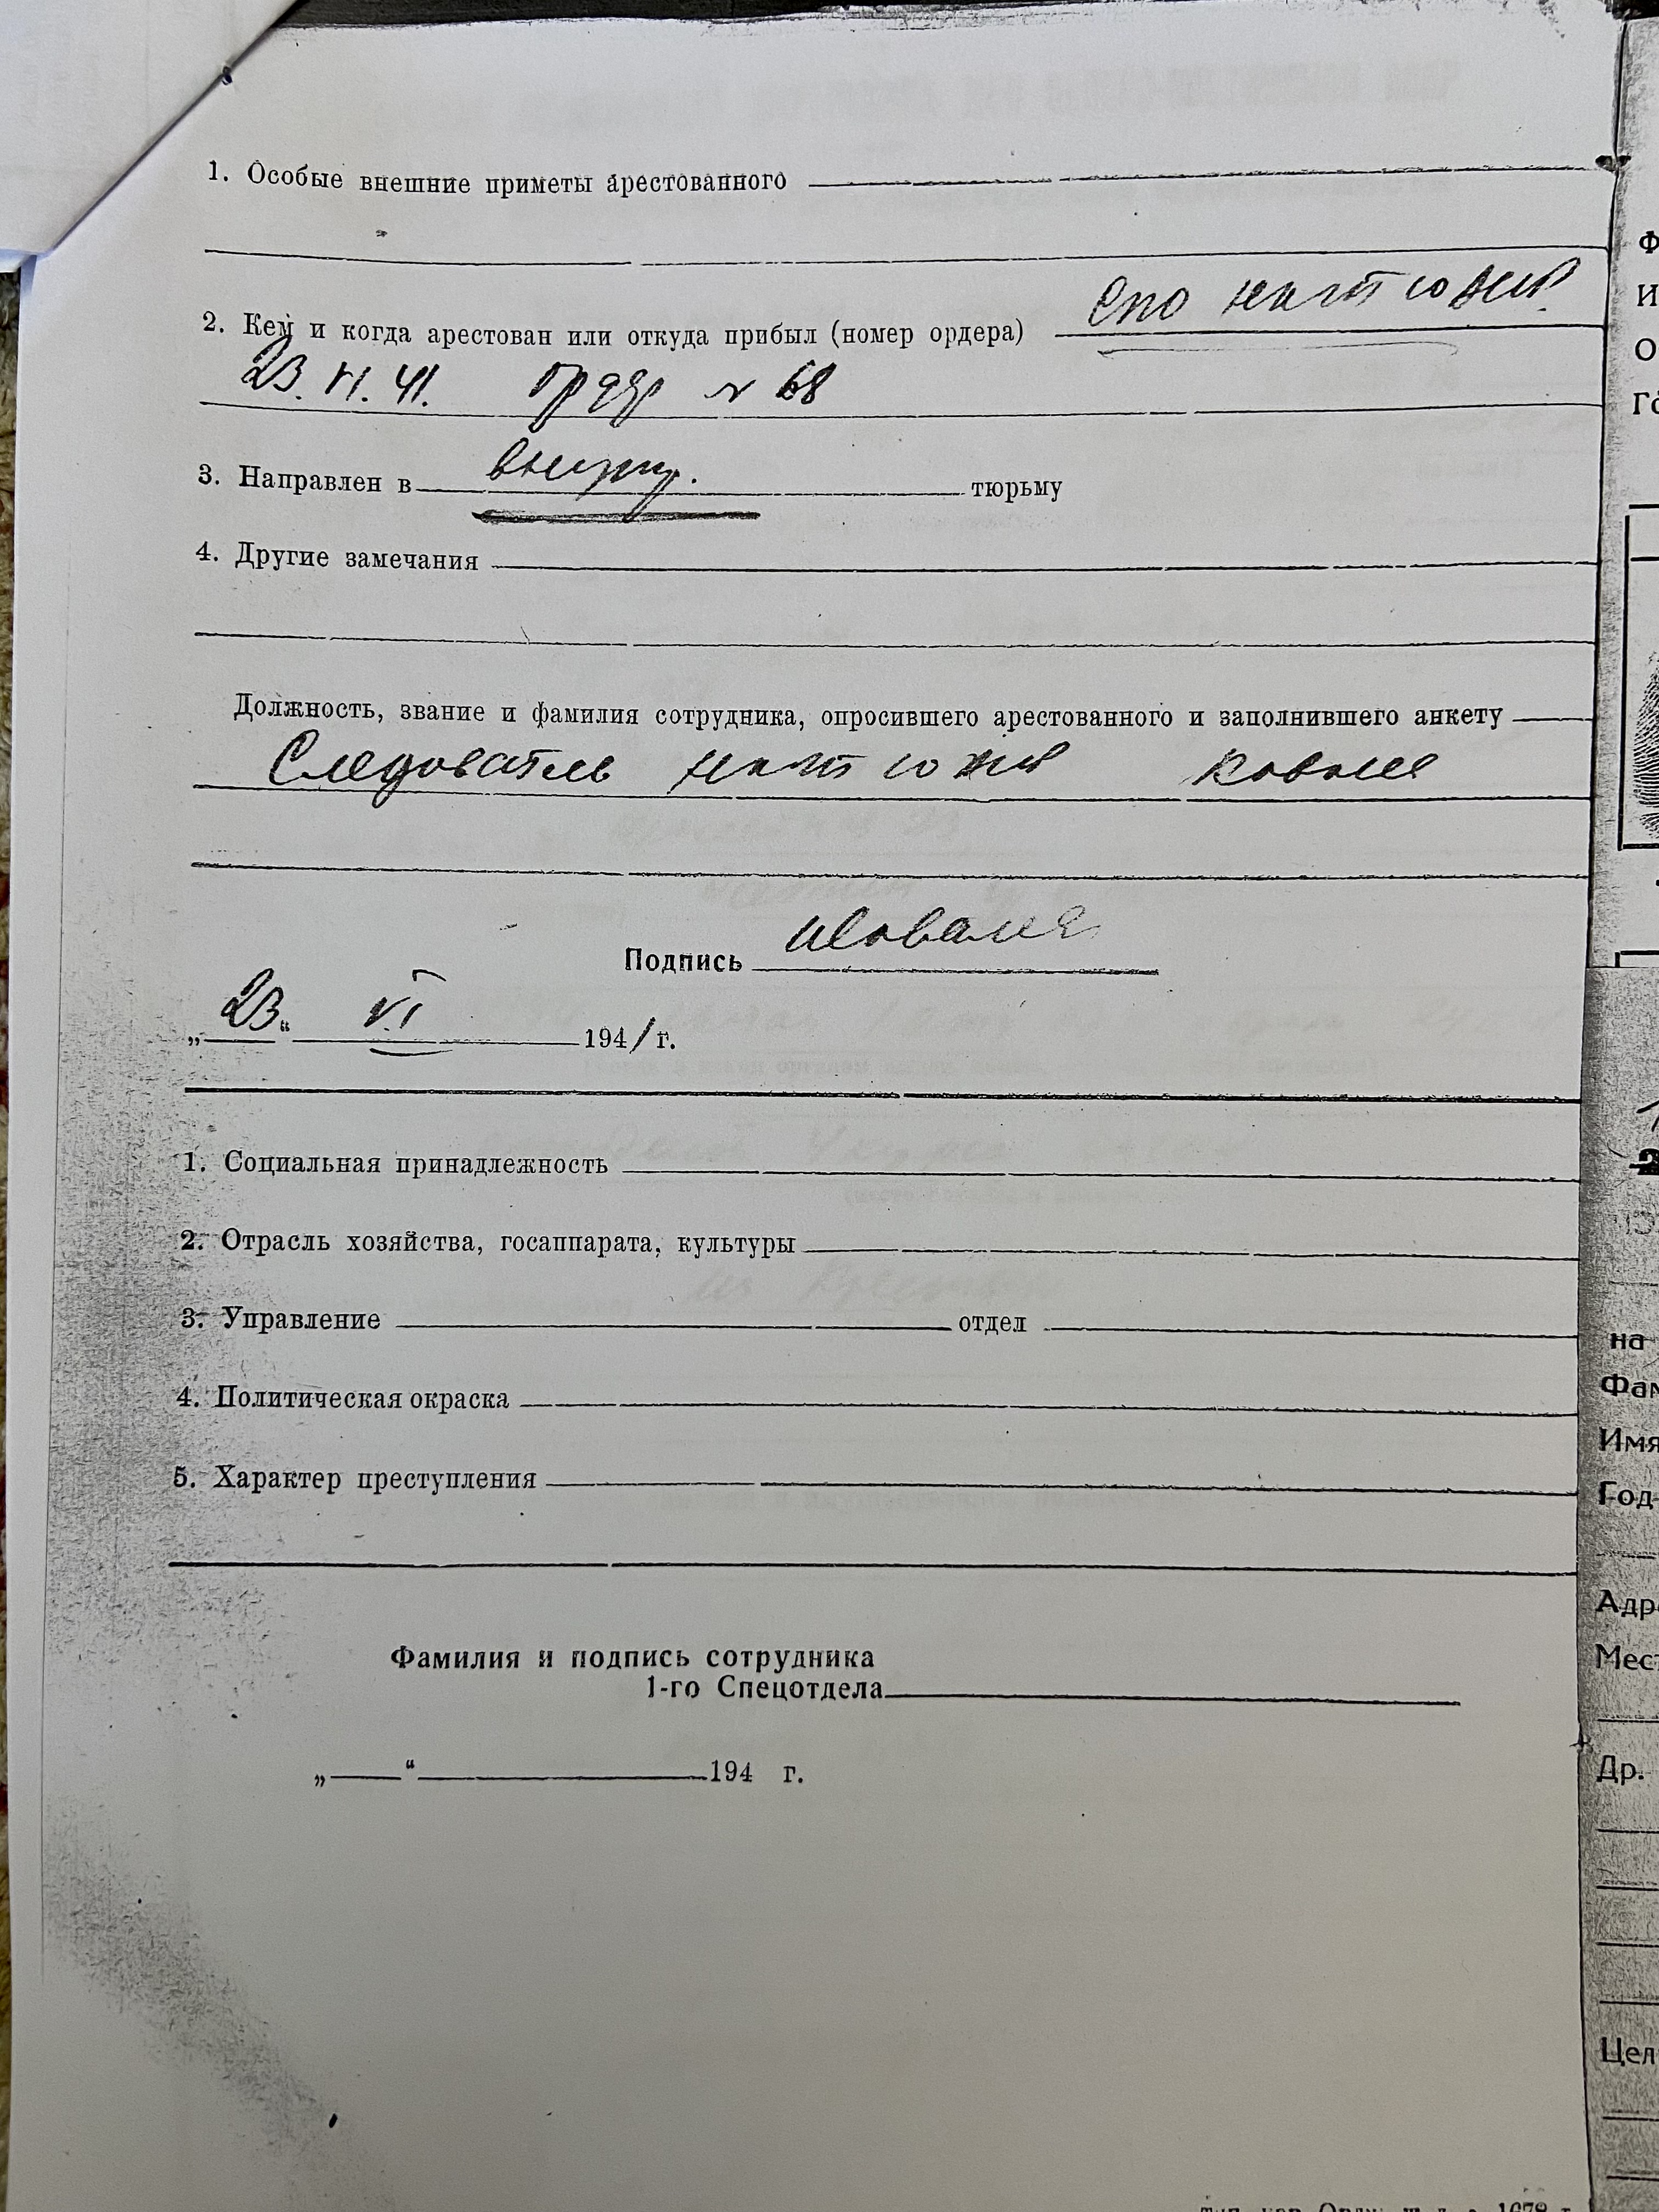 1. Особые внешние приметы арестованного
2. Кем и когда арестован или откуда прибыл (номер ордера) СПО НКГБ
23.VI.41. ордер № 68
3. Направлен в внутр. тюрьму
4. Другие замечания
Должность, звание и фамилия сотрудника, опросившего арестованного и заполнившего анкету
Следователь НКГБ
Подпись
„23“ VI 1941 г.
1. Социальная принадлежность
2. Отрасль хозяйства, госаппарата, культуры
3. Управление отдел
4. Политическая окраска
5. Характер преступления
Фамилия и подпись сотрудника
1-го Спецотдела
„ “ 194 г.
на
Фам
Имя
Год
Адр
Мест
Др.
Цел